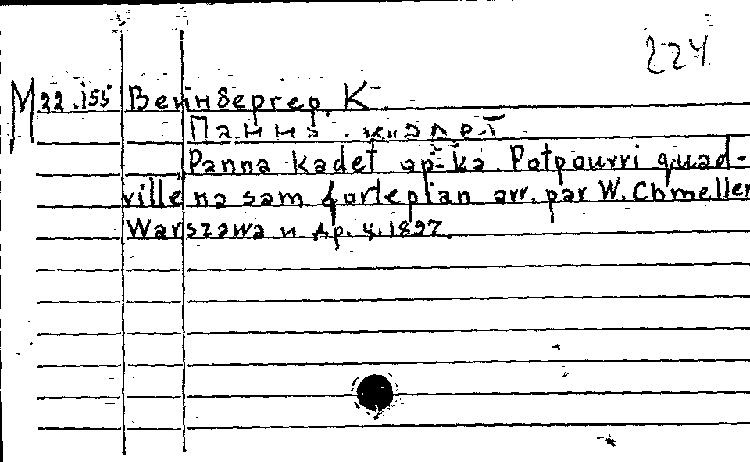 224
M 22.155 Вейнбергер, К
Панна кадет
Panna kadet op-ka Potpourri quad-
rille na sam fortepian arr. par W. Chmeller
Warszawa и др. у. 1897.